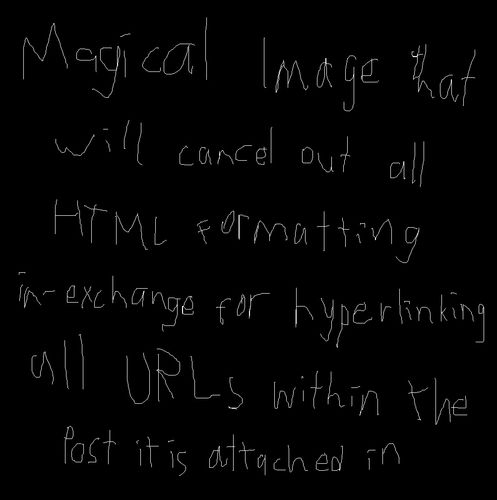 Magical Image that
will cancel out all
HTML formatting
in-exchange for hyperlinking
all URLs within the
Post it is attached in